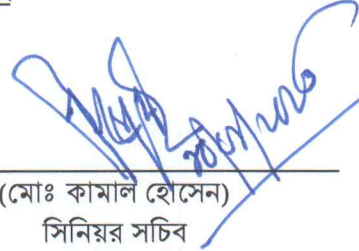 (মোঃ কামাল হোসেন)
সিনিয়র সচিব